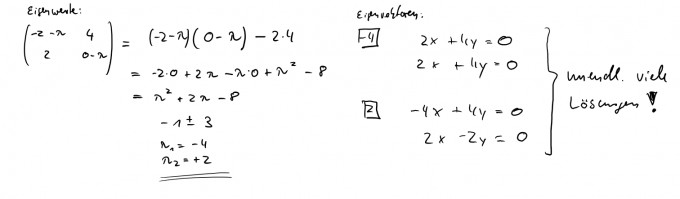 Eigenwerte:
(-2-λ 4
2 0-λ) = (-2-λ)(0-λ) - 2·4
= -2·0 + 2λ - λ·0 + λ² - 8
= λ² + 2λ - 8
-1 ± 3
λ₁ = -4
λ₂ = +2
Eigenvektoren:
-4
2x + 4y = 0
2x + 4y = 0
2
-4x + 4y = 0
2x - 2y = 0
unendl. viele
Lösungen!